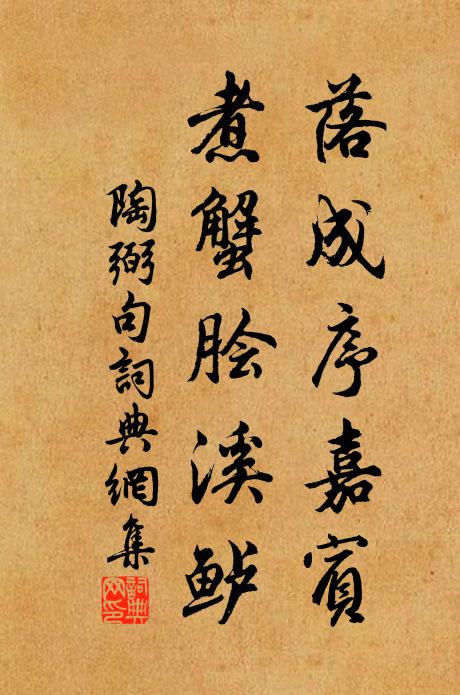 落成序嘉賓
煮蟹脍溪鲈
陶弼句詞典網集
詞典网印